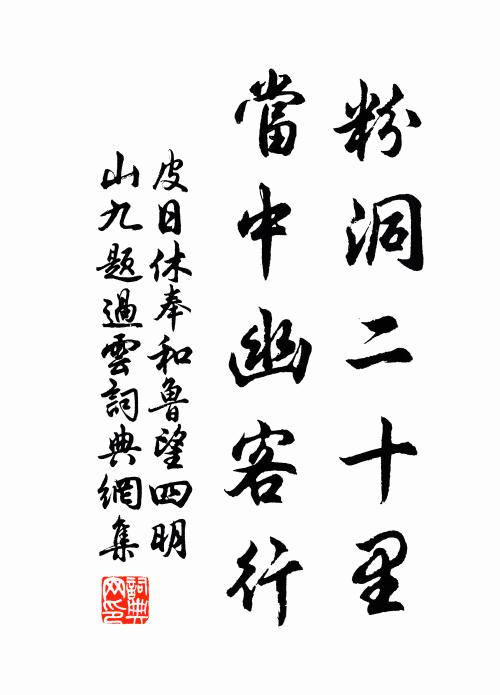 粉洞二十里
當中幽客行
皮日休奉和魯望四明
山九題過雲詞典網集
詞典
网印